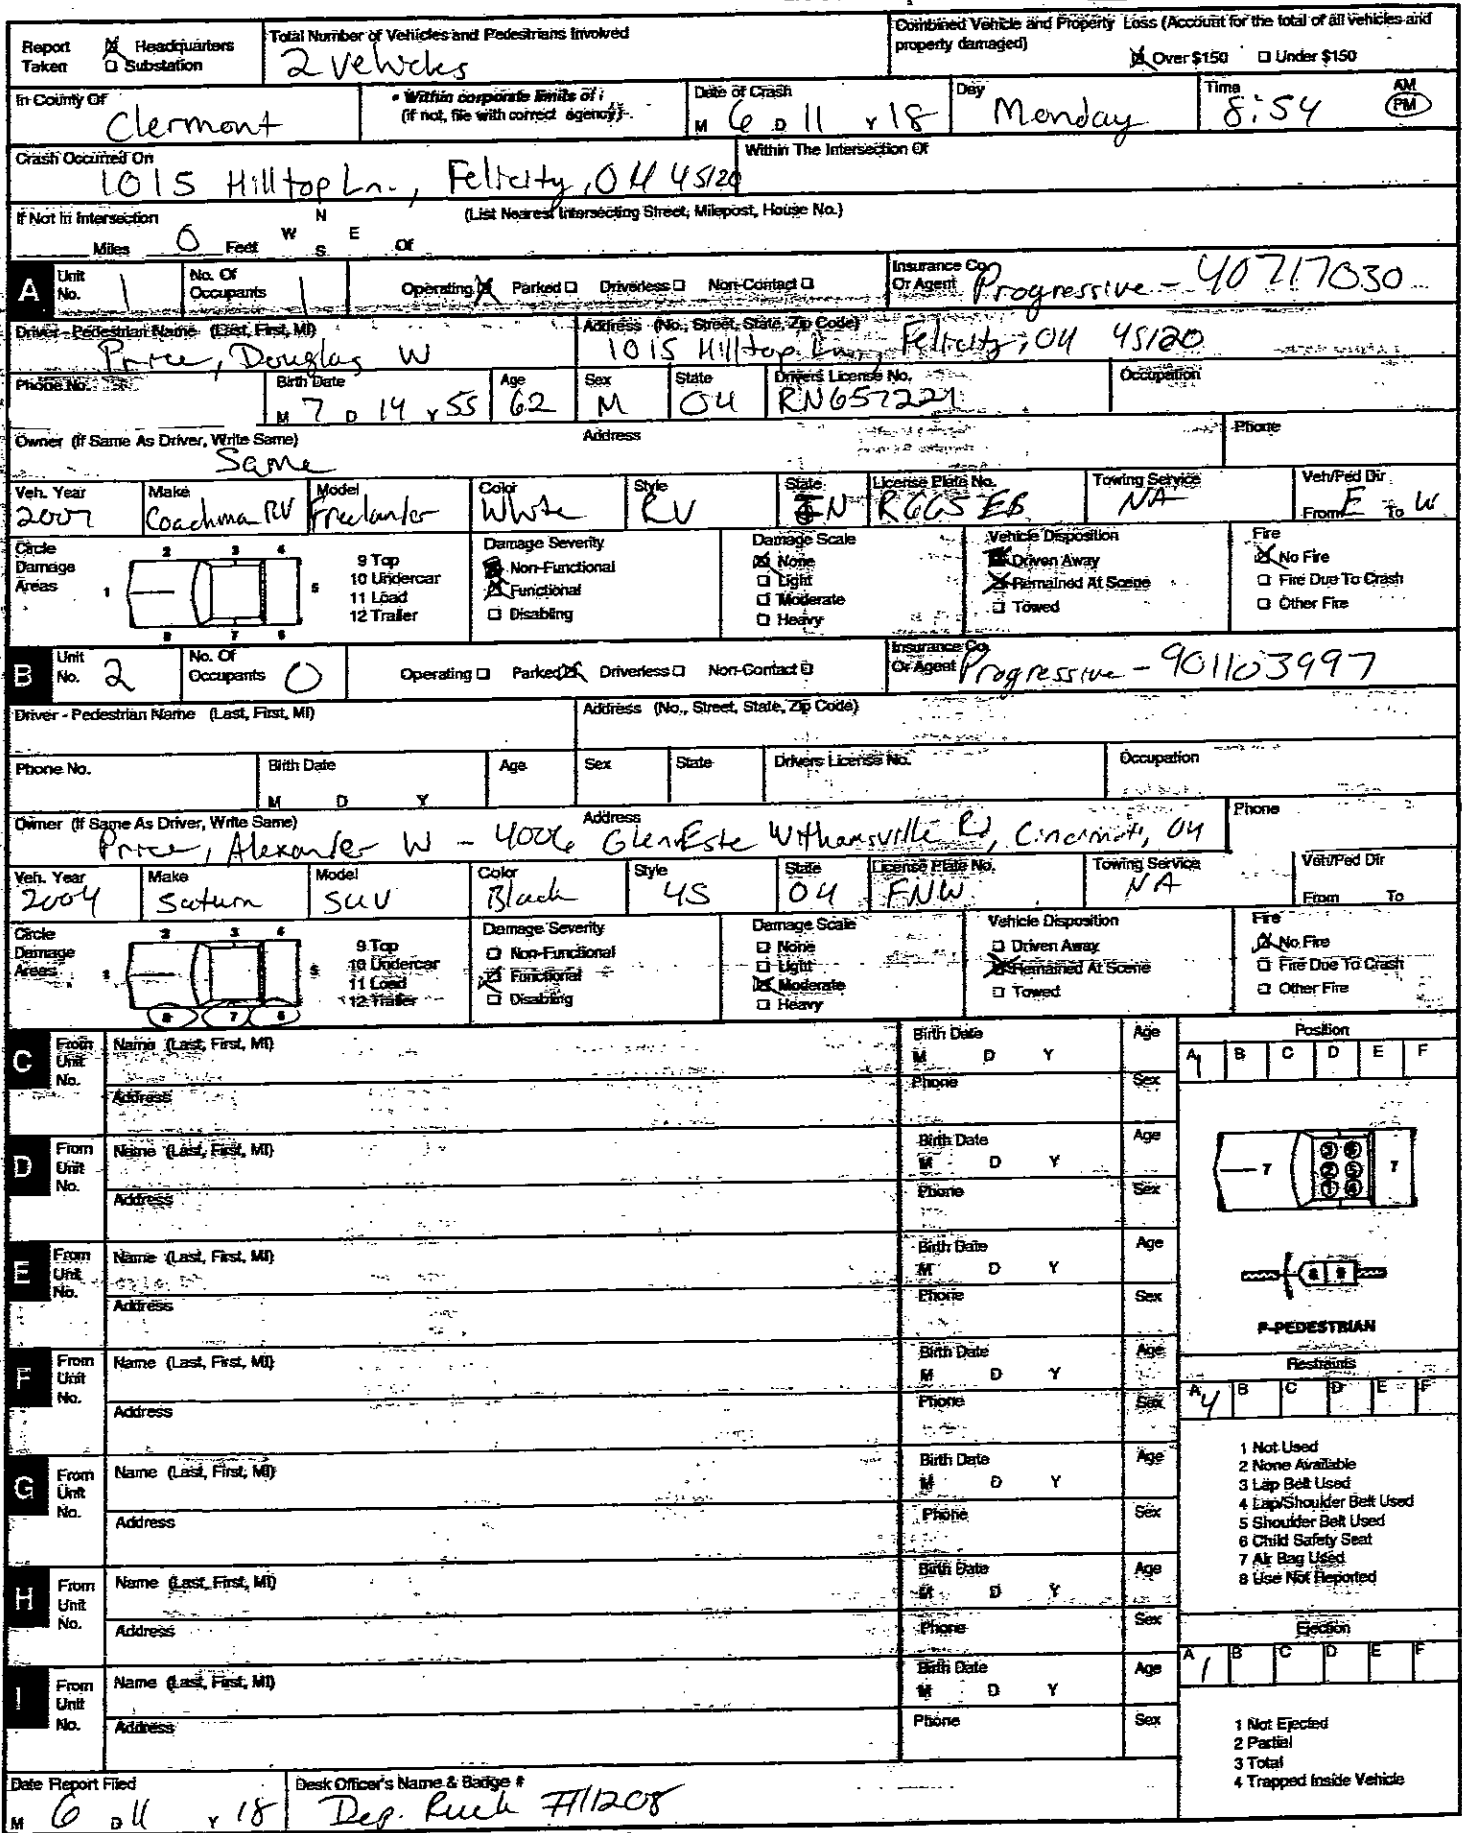 Report Taken ☒ Headquarters ☐ Substation
Total Number of Vehicles and Pedestrians Involved
2 Vehicles
Combined Vehicle and Property Loss (Account for the total of all vehicles and property damaged)
☒ Over $150 ☐ Under $150
In County Of Clermont
• Within corporate limits of: (if not, file with correct agency)
Date of Crash M 6 D 11 Y 18
Day Monday
Time 8:54 AM PM
Crash Occurred On
1015 Hilltop Ln., Felicity, OH 45120
Within The Intersection Of
If Not In Intersection
(List Nearest Intersecting Street, Milepost, House No.)
Miles 0 Feet N W E S Of
A Unit No. 1 No. Of Occupants 1 Operating ☒ Parked ☐ Driverless ☐ Non-Contact ☐ Insurance Co. Or Agent Progressive - 40717030
Driver - Pedestrian Name (Last, First, MI) Price, Douglas W
Address (No., Street, State, Zip Code) 1015 Hilltop Ln., Felicity, OH 45120
Phone No. Birth Date M 7 D 14 Y 55 Age 62 Sex M State OH Drivers License No. RN657221 Occupation
Owner (If Same As Driver, Write Same) Same Address Phone
Veh. Year 2007 Make Coachma RV Model Freelander Color White Style RV State IN License Plate No. R665EB Towing Service NA Veh/Ped Dir From E To W
Circle Damage Areas 1 2 3 4 5 6 7 8
9 Top
10 Undercar
11 Load
12 Trailer
Damage Severity
Non-Functional
☒ Functional
☐ Disabling
Damage Scale
☒ None
☐ Light
☐ Moderate
☐ Heavy
Vehicle Disposition
Driven Away
☒ Remained At Scene
☐ Towed
Fire
☒ No Fire
☐ Fire Due To Crash
☐ Other Fire
B Unit No. 2 No. Of Occupants 0 Operating ☐ Parked ☒ Driverless ☐ Non-Contact ☐ Insurance Co. Or Agent Progressive - 901103997
Driver - Pedestrian Name (Last, First, MI) Address (No., Street, State, Zip Code)
Phone No. Birth Date M D Y Age Sex State Drivers License No. Occupation
Owner (If Same As Driver, Write Same) Address Phone
Price, Alexander W - 4006 GlenEste Withamsville Rd, Cincinnati, OH
Veh. Year 2004 Make Saturn Model SUV Color Black Style 4S State OH License Plate No. FNW Towing Service NA Veh/Ped Dir From To
Circle Damage Areas 1 2 3 4 5 6 7 8
9 Top
10 Undercar
11 Load
12 Trailer
Damage Severity
☐ Non-Functional
☒ Functional
☐ Disabling
Damage Scale
☐ None
☐ Light
☒ Moderate
☐ Heavy
Vehicle Disposition
☐ Driven Away
☒ Remained At Scene
☐ Towed
Fire
☒ No Fire
☐ Fire Due To Crash
☐ Other Fire
C From Unit No. Name (Last, First, MI) Birth Date M D Y Age
Address Phone Sex
D From Unit No. Name (Last, First, MI) Birth Date M D Y Age
Address Phone Sex
E From Unit No. Name (Last, First, MI) Birth Date M D Y Age
Address Phone Sex
F From Unit No. Name (Last, First, MI) Birth Date M D Y Age
Address Phone Sex
G From Unit No. Name (Last, First, MI) Birth Date M D Y Age
Address Phone Sex
H From Unit No. Name (Last, First, MI) Birth Date M D Y Age
Address Phone Sex
I From Unit No. Name (Last, First, MI) Birth Date M D Y Age
Address Phone Sex
Position
A 1 B C D E F
7 3 6 2 5 1 4 7
8 9
P-PEDESTRIAN
Restraints
A 4 B C D E F
1 Not Used
2 None Available
3 Lap Belt Used
4 Lap/Shoulder Belt Used
5 Shoulder Belt Used
6 Child Safety Seat
7 Air Bag Used
8 Use Not Reported
Ejection
A 1 B C D E F
1 Not Ejected
2 Partial
3 Total
4 Trapped Inside Vehicle
Date Report Filed M 6 D 11 Y 18
Desk Officer's Name & Badge #
Dep.